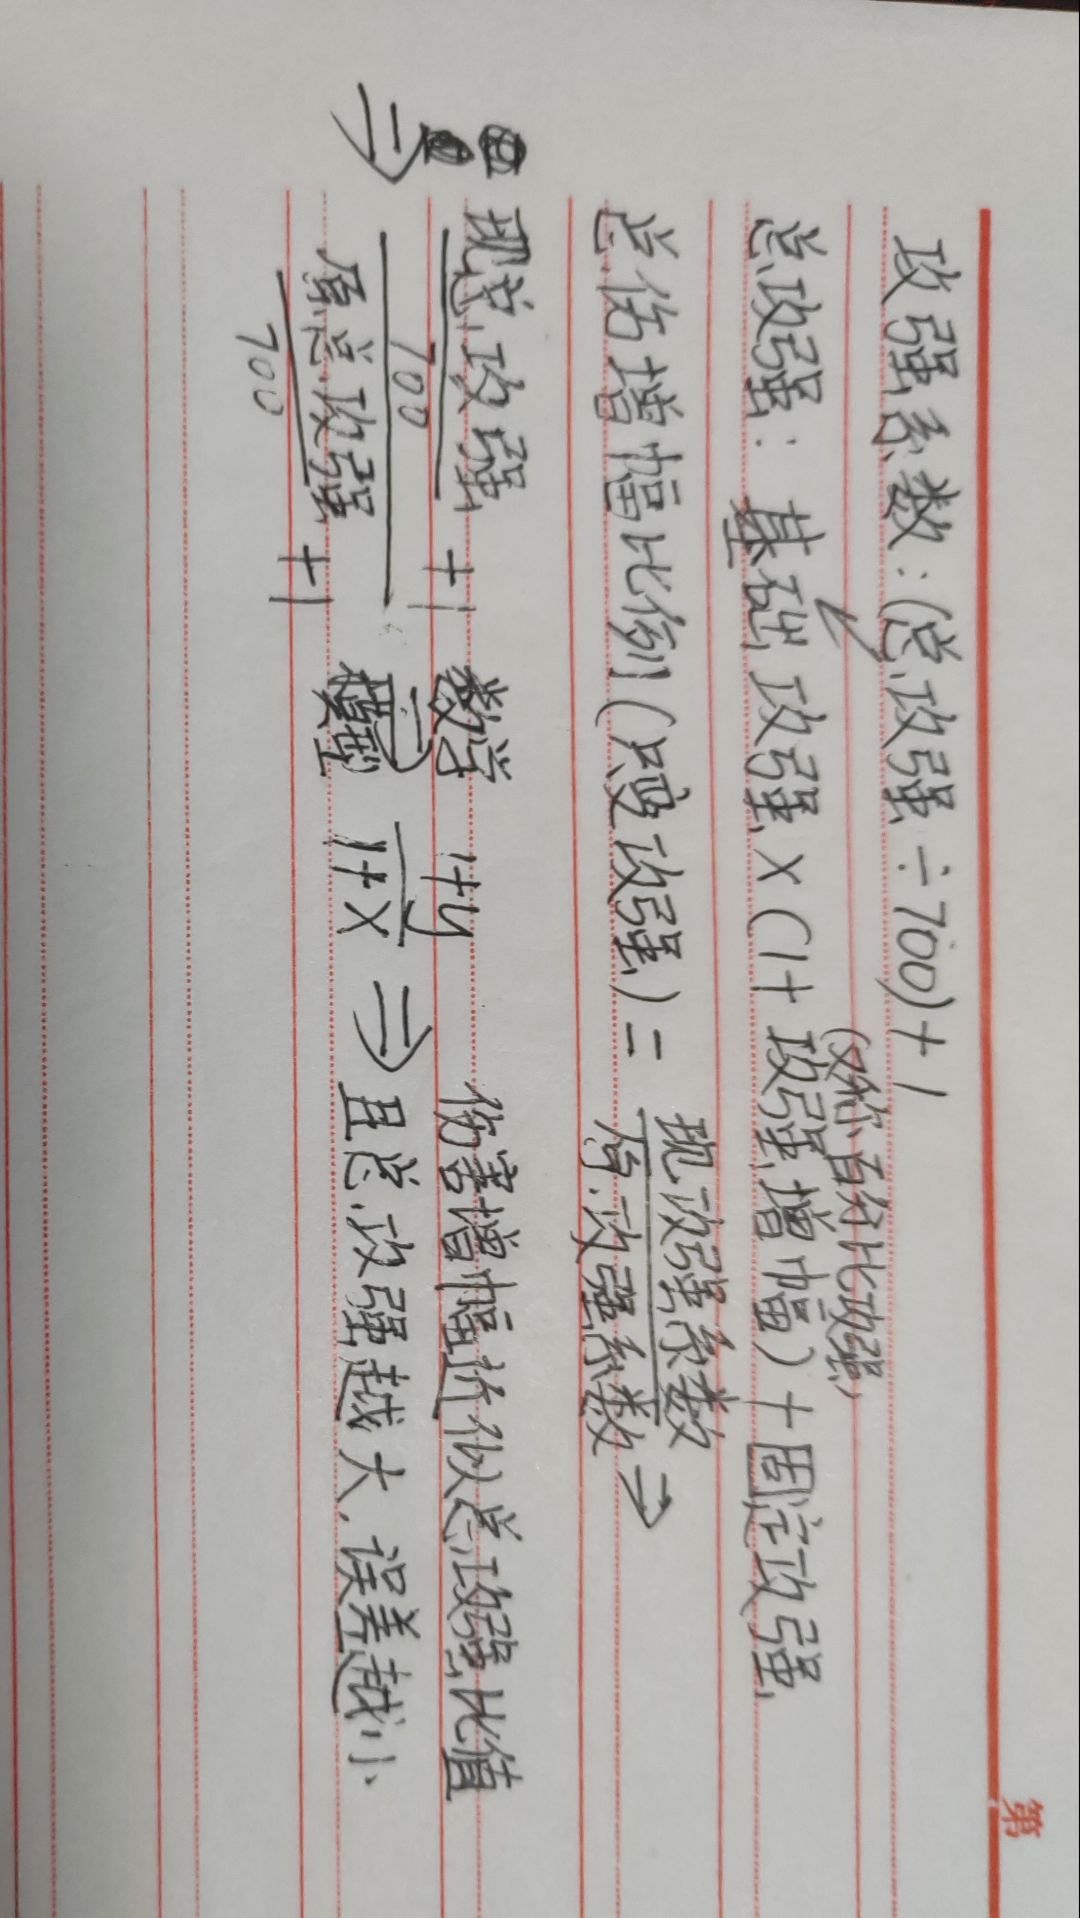 第
攻强系数:(总攻强÷700)+1
(又称百分比攻强)
总攻强:基础攻强×(1+攻强增幅)+固定攻强
总伤增幅比例(只变攻强)=现攻强系数/原攻强系数→
⇒ (现总攻强/700+1)/(原总攻强/700+1) 数学模型⇒ 1+y/1+x ⇒ 伤害增幅近似总攻强比值
且总攻强越大,误差越小.